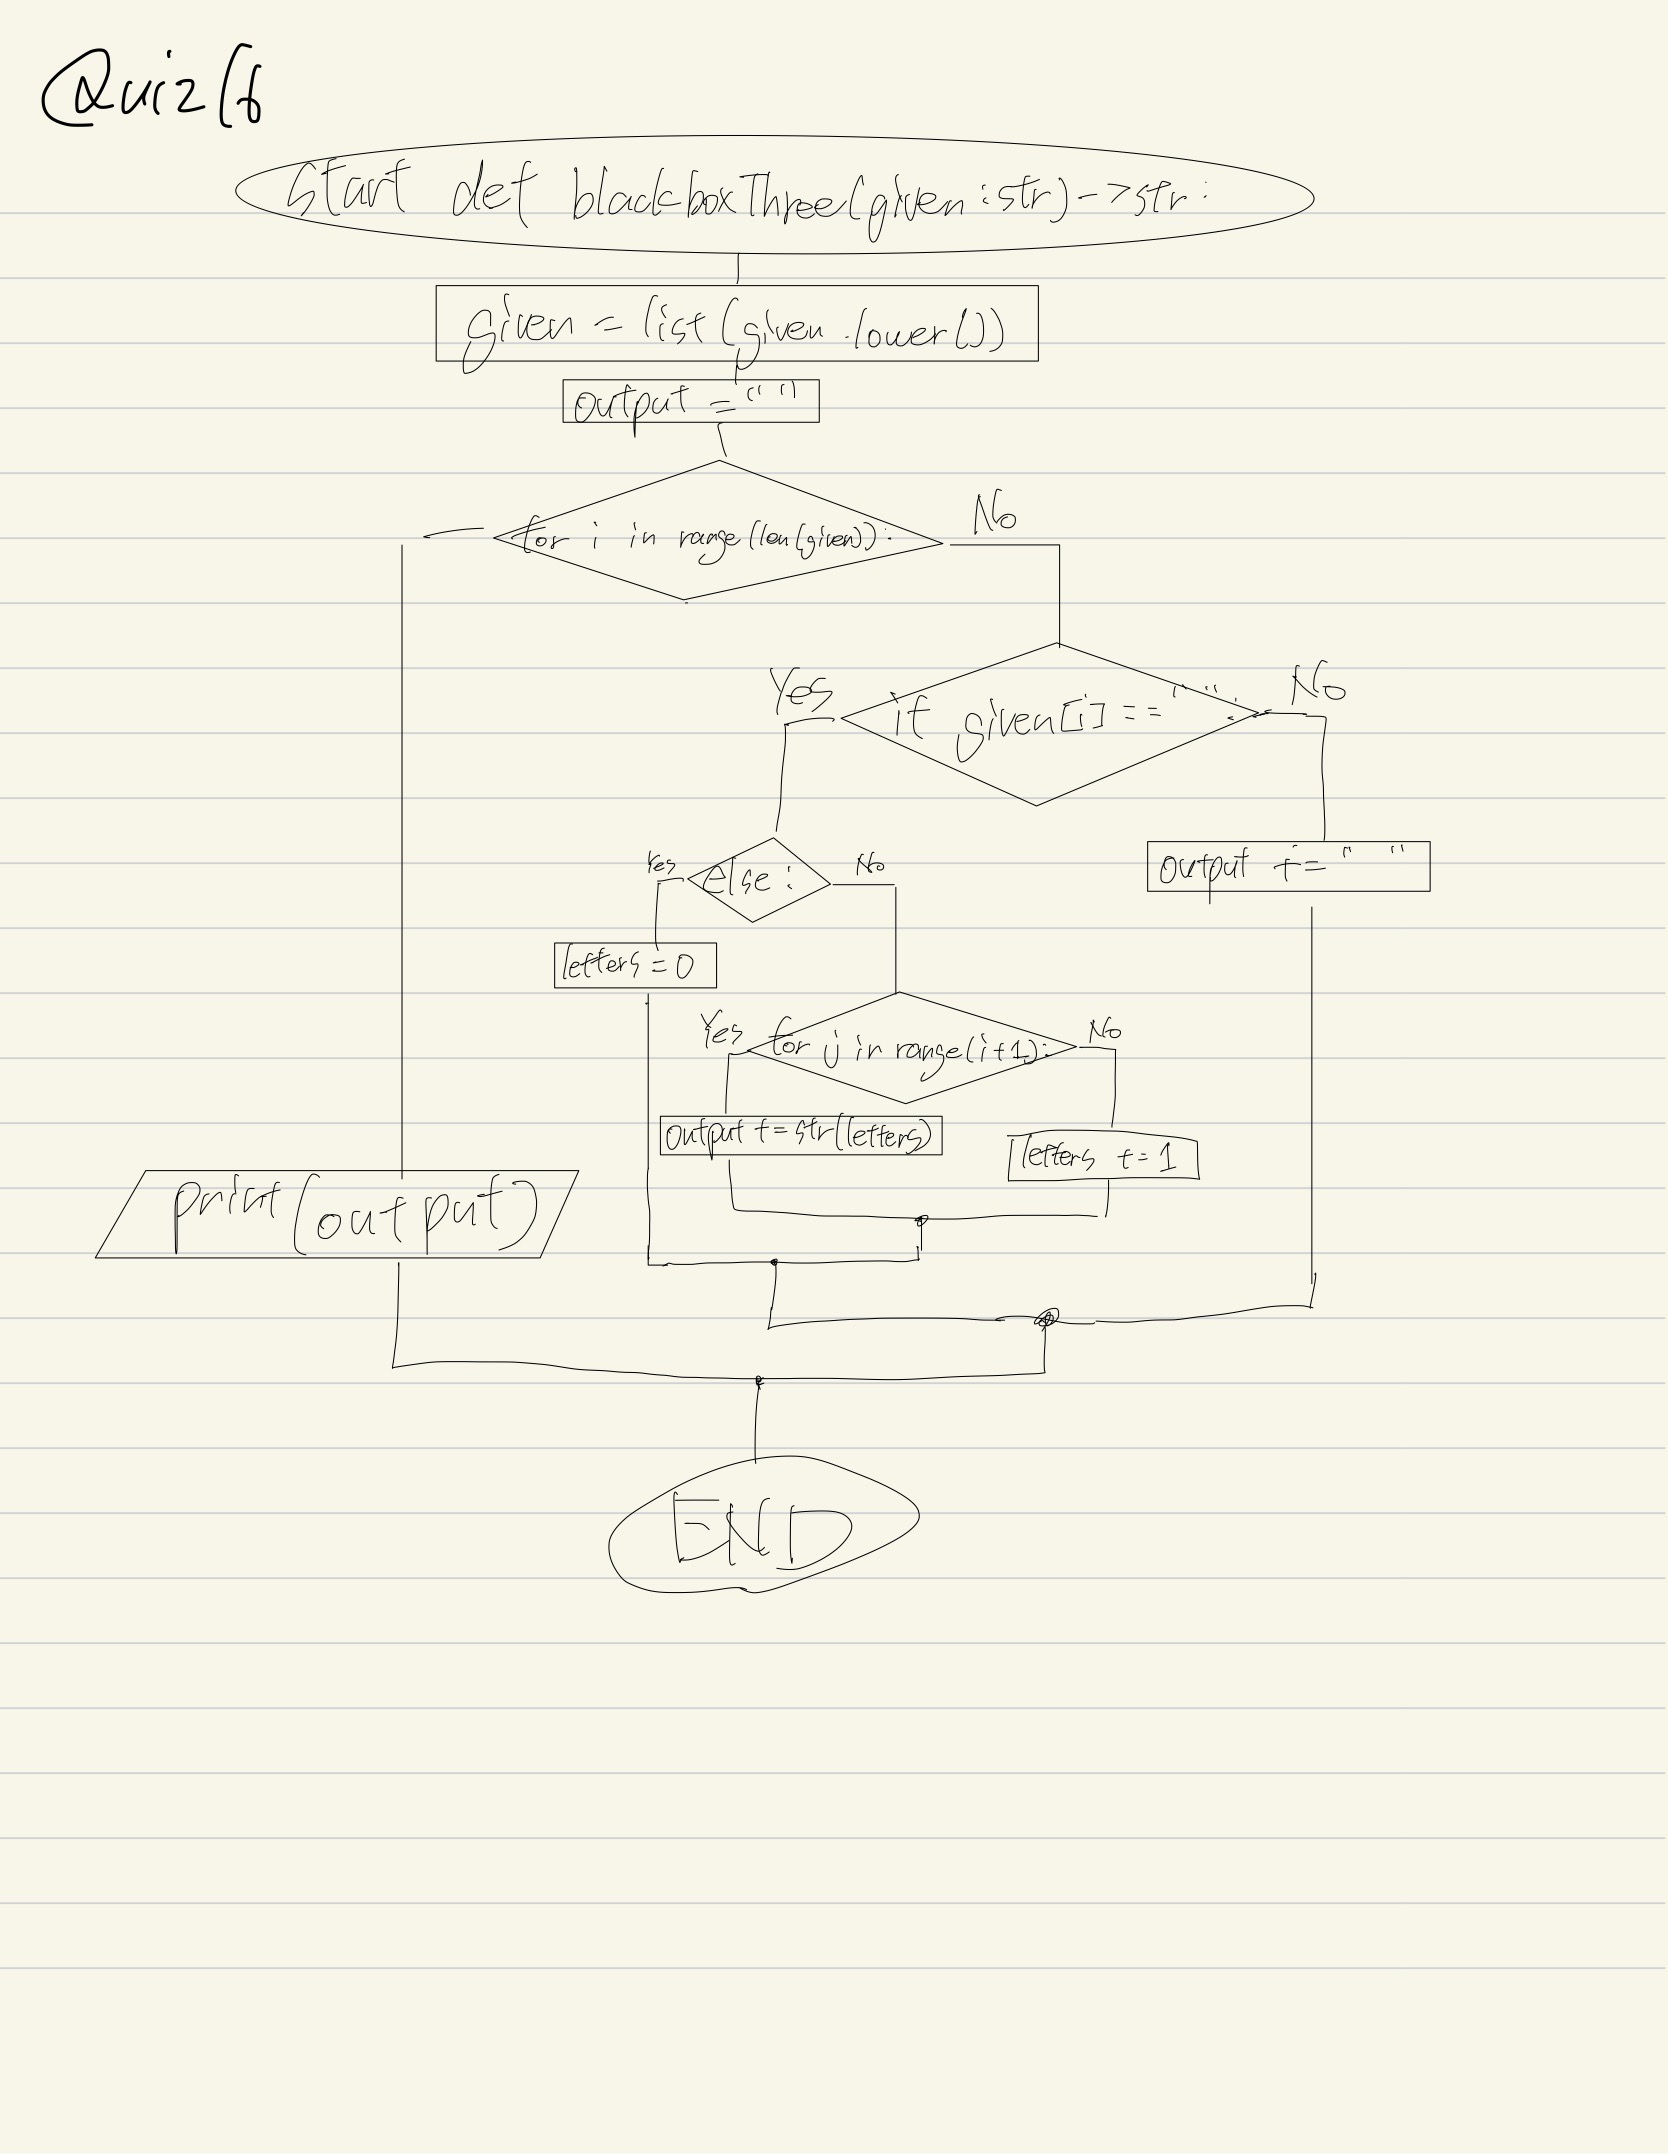 Quiz 16
Start def blackboxThree(given:str)->str:
given = list(given.lower())
output = ""
for i in range(len(given)):
No
Yes
if given[i] == " ":
No
Yes
else:
No
output += " "
letters = 0
Yes
for j in range(i+1):
No
output += str(letters)
letters += 1
print(output)
END